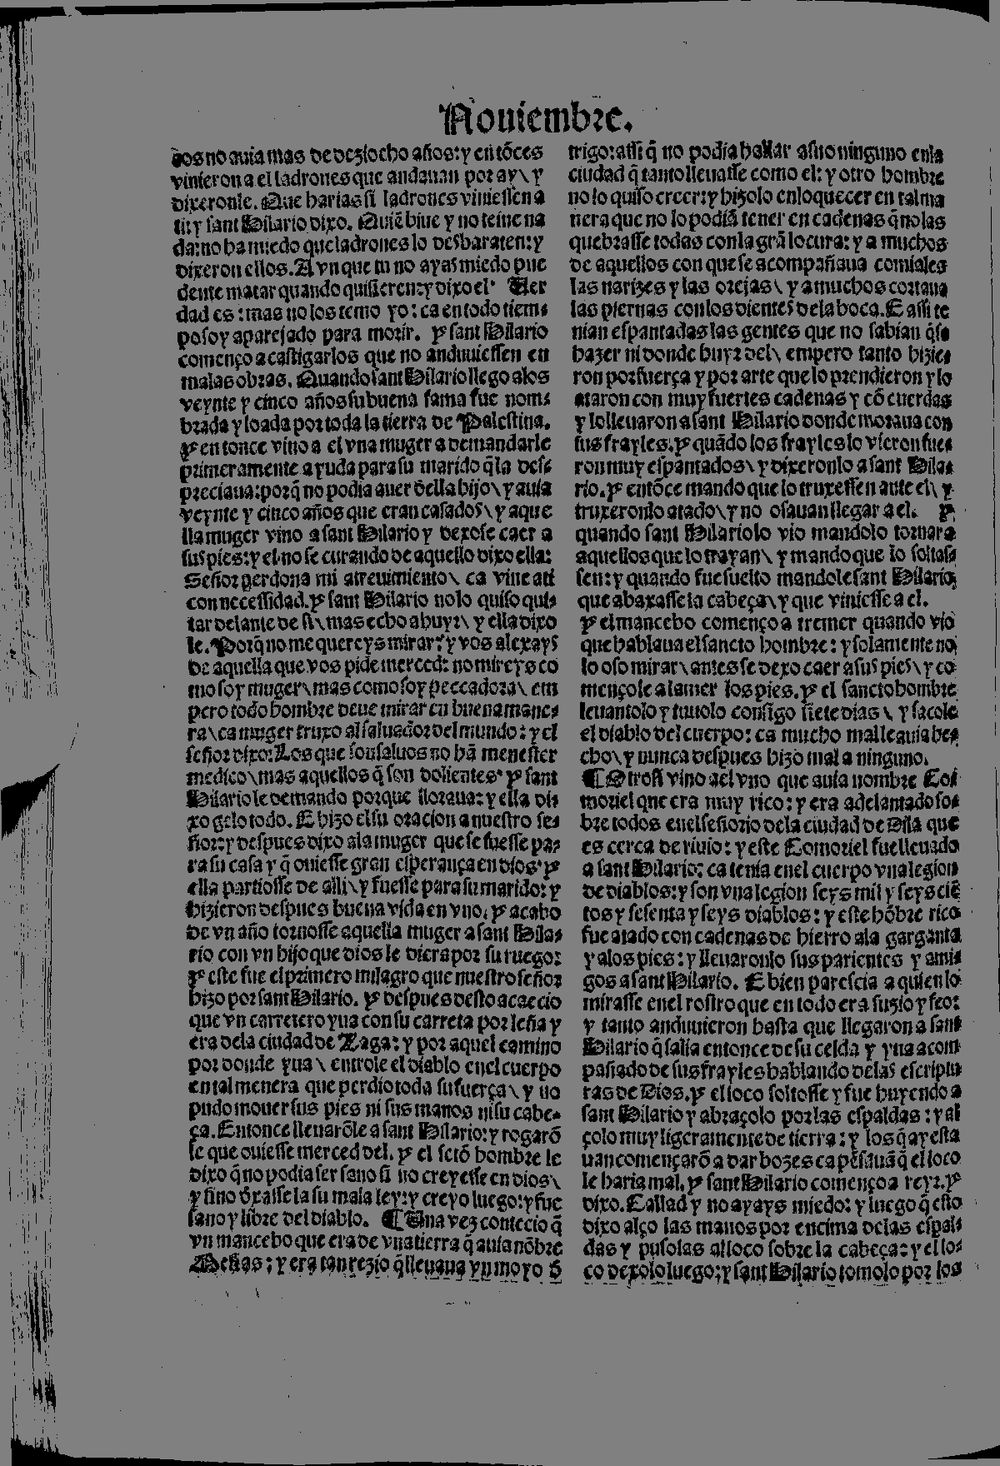 Nouiembre.
dos no auia mas de deziocho años: y entõces
vinieron a el ladrones que andauan por ay \ y
dixeronle. Que harias si ladrones viniessen a
ti: y sant Hilario dixo. Quiẽ biue y no teine na
da: no ha miedo que ladrones lo desbaraten: y
dixeron ellos. Avn que tu no ayas miedo pue
dente matar quando quisieren: y dixo el. Uer
dad es: mas no los temo yo: ca en todo tiem-
po soy aparejado para morir. Y sant Hilario
començo a castigarlos que no anduuiessen en
malas obras. Quando sant Hilario llego a los
veynte y cinco años su buena fama fue nom-
brada y loada por toda la tierra de Palestina.
Y en tonce vino a el vna muger a demandarle
primeramente ayuda para su marido q̃ la des-
preciaua: porq̃ no podia auer della hijo \ y auia
veynte y cinco años que eran casados \ y aque
lla muger vino a sant Hilario y dexose caer a
sus pies: y el no se curando de aquello dixo ella:
Señor perdona mi atreuimiento \ ca vine a ti
con necessidad. Y sant Hilario no lo quiso qui-
tar delante de si \ mas echo a huyr \ y ella dixo
le. Porq̃ no me quereys mirar: y vos alexays
de aquella que vos pide merced: no mireys co
mo soy muger \ mas como soy peccadora \ em
pero todo hombre deue mirar en buena mane-
ra \ ca muger truxo al saluador del mundo: y el
señor dixo: Los que son saluos no hã menester
medico \ mas aquellos q̃ son dolientes. Y sant
Hilario le demando porque lloraua: y ella di-
xo gelo todo. E hizo el su oracion a nuestro se-
ñor: y despues dixo a la muger que se fuesse pa-
ra su casa y q̃ ouiesse gran esperança en dios. Y
ella partiosse de alli \ y fuesse para su marido: y
hizieron despues buena vida en vno. Y acabo
de vn año tornosse aquella muger a sant Hila-
rio con vn hijo que dios le diera por su ruego:
Y este fue el primero milagro que nuestro señor
hizo por sant Hilario. Y despues desto acaecio
que vn carretero yua con su carreta por leña y
era dela ciudad de Zaga: y por aquel camino
por donde yua \ entrole el diablo en el cuerpo
en tal menera que perdio toda su fuerça \ y no
pudo mouer sus pies ni sus manos ni su cabe-
ça. Entonce lleuarõle a sant Hilario: y rogarõ
le que ouiesse merced del. Y el sctõ hombre le
dixo q̃ no podia ser sano si no creyesse en dios \
y sino dexasse la su mala ley: y creyo luego: y fue
sano y libre del diablo. ¶ Una vez contecio q̃
vn mancebo que era de vna tierra q̃ auia nõbre
y era tan rezio q̃ lleuaua vn moyo d̃
trigo: assi q̃ no podia hallar asno ninguno en la
ciudad q̃ tanto lleuasse como el: y otro hombre
no lo quiso creer: y hizolo enloquecer en tal ma
nera que no lo podiã tener en cadenas q̃ no las
quebrasse todas con la grã locura: y a muchos
de aquellos con que se acompañaua comiales
las narizes y las orejas \ y a muchos cortaua
las piernas con los dientes de la boca. E assi te
nian espantadas las gentes que no sabian q̃ se
hazer ni donde huyr del \ empero tanto hizie-
ron por fuerça y por arte que lo prendieron y lo
ataron con muy fuertes cadenas y cõ cuerdas
y lo lleuaron a sant Hilario donde moraua con
sus frayles. Y quãdo los frayles lo vieron fue-
ron muy espantados \ y dixeronlo a sant Hila-
rio. Y entõce mando que lo truxessen ante el \ y
truxeronlo atado \ y no osauan llegar a el. Y
quando sant Hilario lo vio mandolo tornar a
aquellos que lo trayan \ y mando que lo soltas
sen: y quando fue suelto mandole sant Hilario,
que abaxasse la cabeça \ y que viniesse a el.
Y el mancebo començo a tremer quando vio
que hablaua el sancto hombre: y solamente no
lo oso mirar \ antes se dexo caer a sus pies \ y co
mençole a lamer los pies. Y el sancto hombre
leuantolo y tuuolo consigo siete dias \ y sacole
el diablo del cuerpo: ca mucho mal le auia he-
cho \ y nunca despues hizo mal a ninguno.
¶ Otrosi vino a el vno que auia nombre Co
moriel que era muy rico: y era adelantado so-
bre todos en el señorio de la ciudad de Dila que
es cerca de riuio: y este Comoriel fue lleuado
a sant Hilario: ca tenia en el cuerpo vna legion
de diablos: y son vna legion seys mil y seys ciẽ
tos y sesenta y seys diablos: y este hõbre rico
fue atado con cadenas de hierro a la garganta
y a los pies: y lleuaronlo sus parientes y ami-
gos a sant Hilario. E bien parescia a quien lo
mirasse en el rostro que en todo era suzio y feo:
y tanto anduuieron hasta que llegaron a sant
Hilario q̃ salia entonce de su celda y yua acom
pañado de sus frayles hablando de las escriptu
ras de Dios. Y el loco soltosse y fue huyendo a
sant Hilario y abraçolo por las espaldas: y al
çolo muy ligeramente de tierra: y los q̃ ay esta
uan començarõ a dar bozes ca pẽsauã q̃ el loco
le haria mal. Y sant Hilario començo a reyr. Y
dixo. Callad y no ayays miedo: y luego q̃ esto
dixo alço las manos por encima de las espal-
das y pusolas al loco sobre la cabeça: y el lo-
co dexolo luego: y sant Hilario tomolo por los